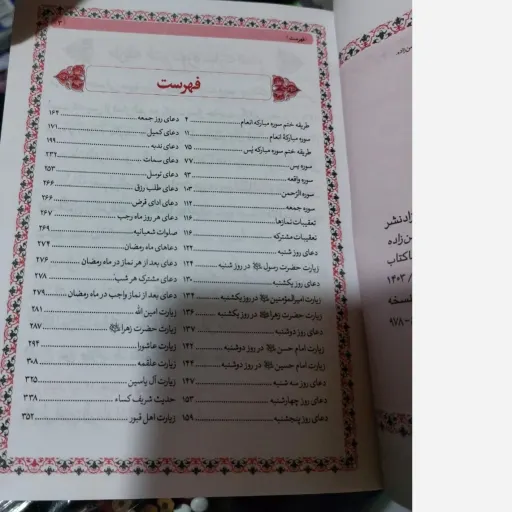 فهرست
طریقه ختم سوره مبارکه انعام ۲
سوره مبارکهٔ انعام ۱۱
طریقه ختم سوره مبارکه یُس ۷۵
سوره یس ۷۷
سوره واقعه ۹۳
سوره الرّحمن ۱۰۳
سوره جمعه ۱۱۲
تعقیبات نمازها ۱۱۶
تعقیبات مشترکه ۱۱۶
دعای روز شنبه ۱۲۲
زیارت حضرت رسول ﷺ در روز شنبه ۱۲۴
دعای روز یکشنبه ۱۳۰
زیارت امیرالمؤمنین در روز یکشنبه ۱۳۲
زیارت حضرت زهرا در روز یکشنبه ۱۳۶
دعای روز دوشنبه ۱۳۷
زیارت امام حسن در روز دوشنبه ۱۴۲
زیارت امام حسین در روز دوشنبه ۱۴۴
دعای روز سه شنبه ۱۴۷
دعای روز چهارشنبه ۱۵۳
دعای روز پنجشنبه ۱۵۹
دعای روز جمعه ۱۶۴
دعای کمیل ۱۷۱
دعای ندبه ۱۹۹
دعای سمات ۲۳۲
دعای توسل ۲۵۳
دعای طلب رزق ۲۶۶
دعای ادای قرض ۲۶۶
دعای هر روز ماه رجب ۲۶۷
صلوات شعبانیه ۲۶۹
دعاهای ماه رمضان ۲۷۴
دعای بعد از هر نماز در ماه رمضان ۲۷۶
دعای مشترک هر شب ۲۷۸
دعای بعد از نماز واجب در ماه رمضان ۲۷۹
زیارت امین الله ۲۸۱
زیارت حضرت زهرا ۲۸۷
زیارت عاشورا ۲۹۴
زیارت علقمه ۳۰۸
زیارت آل یاسین ۳۲۵
حدیث شریف کساء ۳۳۸
زیارت اهل قبور ۳۵۲
راد نشر
ن زاده
ماکتاب
/ ۱۴۰۳
نسخه
۹۷۸ -